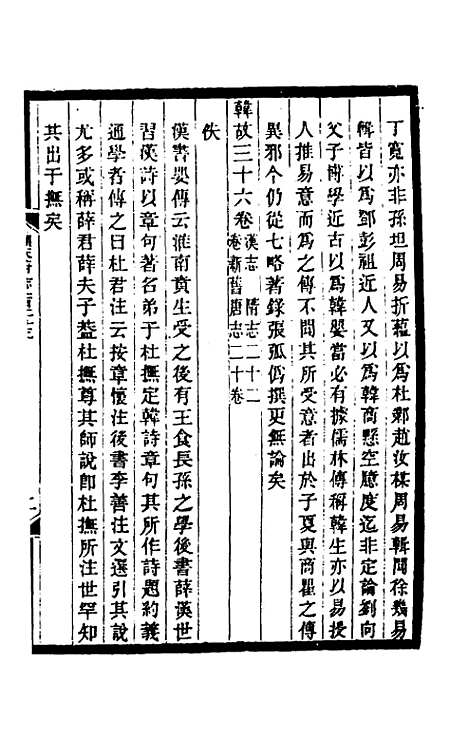 丁寬亦非孫坦周易折蘊以為杜鄴趙汝楳周易輯聞徐幾易
輯皆以為鄧彭祖近人又以為韓商懸空臆度迄非定論劉向
父子博學近古以為韓嬰當必有據儒林傳稱韓生亦以易授
人推易意而為之傳不問其所受意者出於子夏與商瞿之傳
異邪今仍從七略著錄張弧偽撰更無論矣
韓故三十六卷漢志 隋志二十二卷新舊唐志二十卷
佚
漢書嬰傳云淮南賁生受之後有王食長孫之學後書薛漢世
習漢詩以章句著名弟子杜撫定韓詩章句其所作詩題約義
通學者傳之曰杜君注云按章懷注後書李善注文選引其說
尤多或稱薛君薛夫子葢杜撫尊其師說即杜撫所注世罕知
其出于撫矣